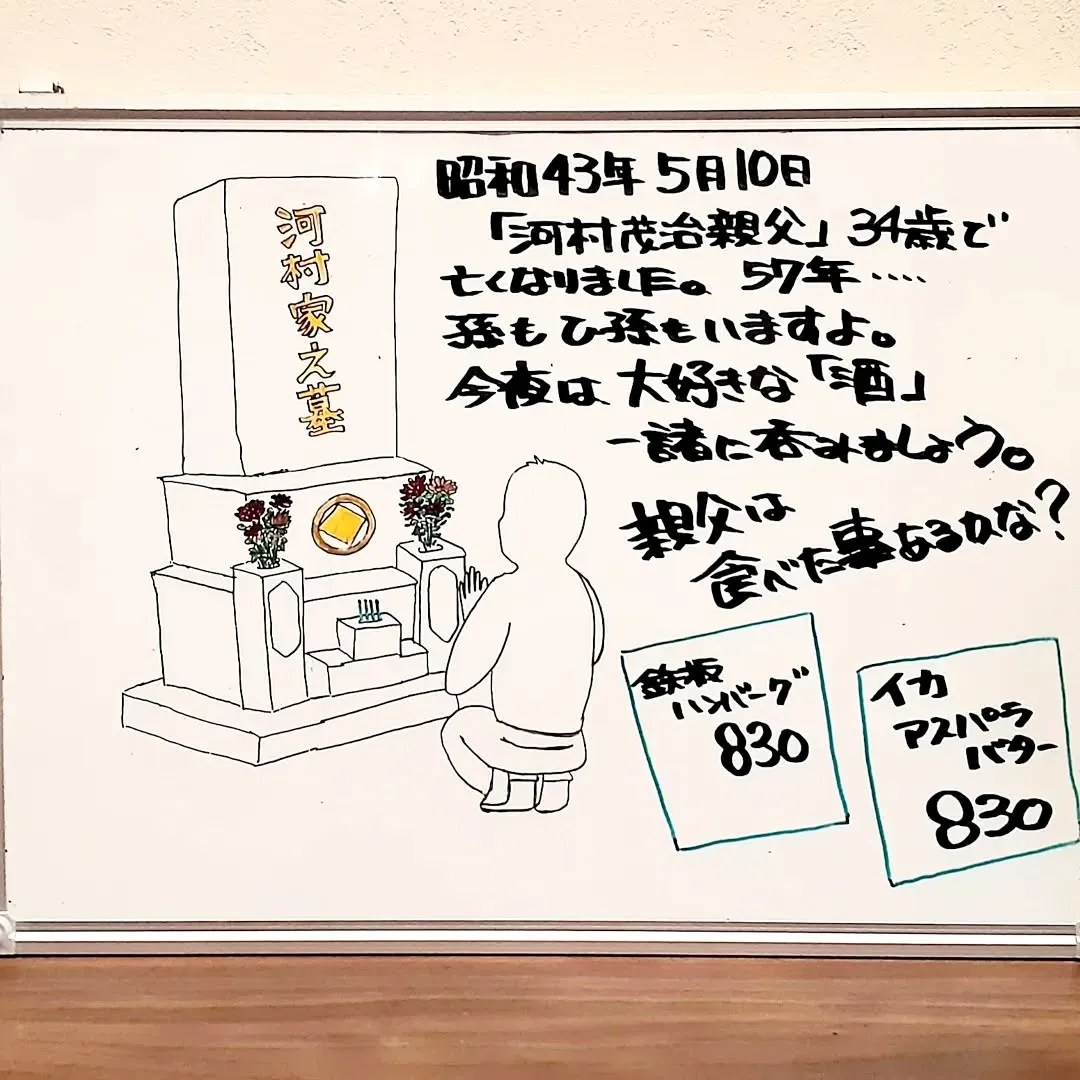 河村家之墓
昭和43年5月10日
「河村茂治親父」34歳で
亡くなりました。57年‥‥
孫もひ孫もいますよ。
今夜は大好きな「酒」
一諸に呑みましょう。
親父は
食べた事あるかな?
鉄板
ハンバーグ
830
イカ
アスパラ
バター
830